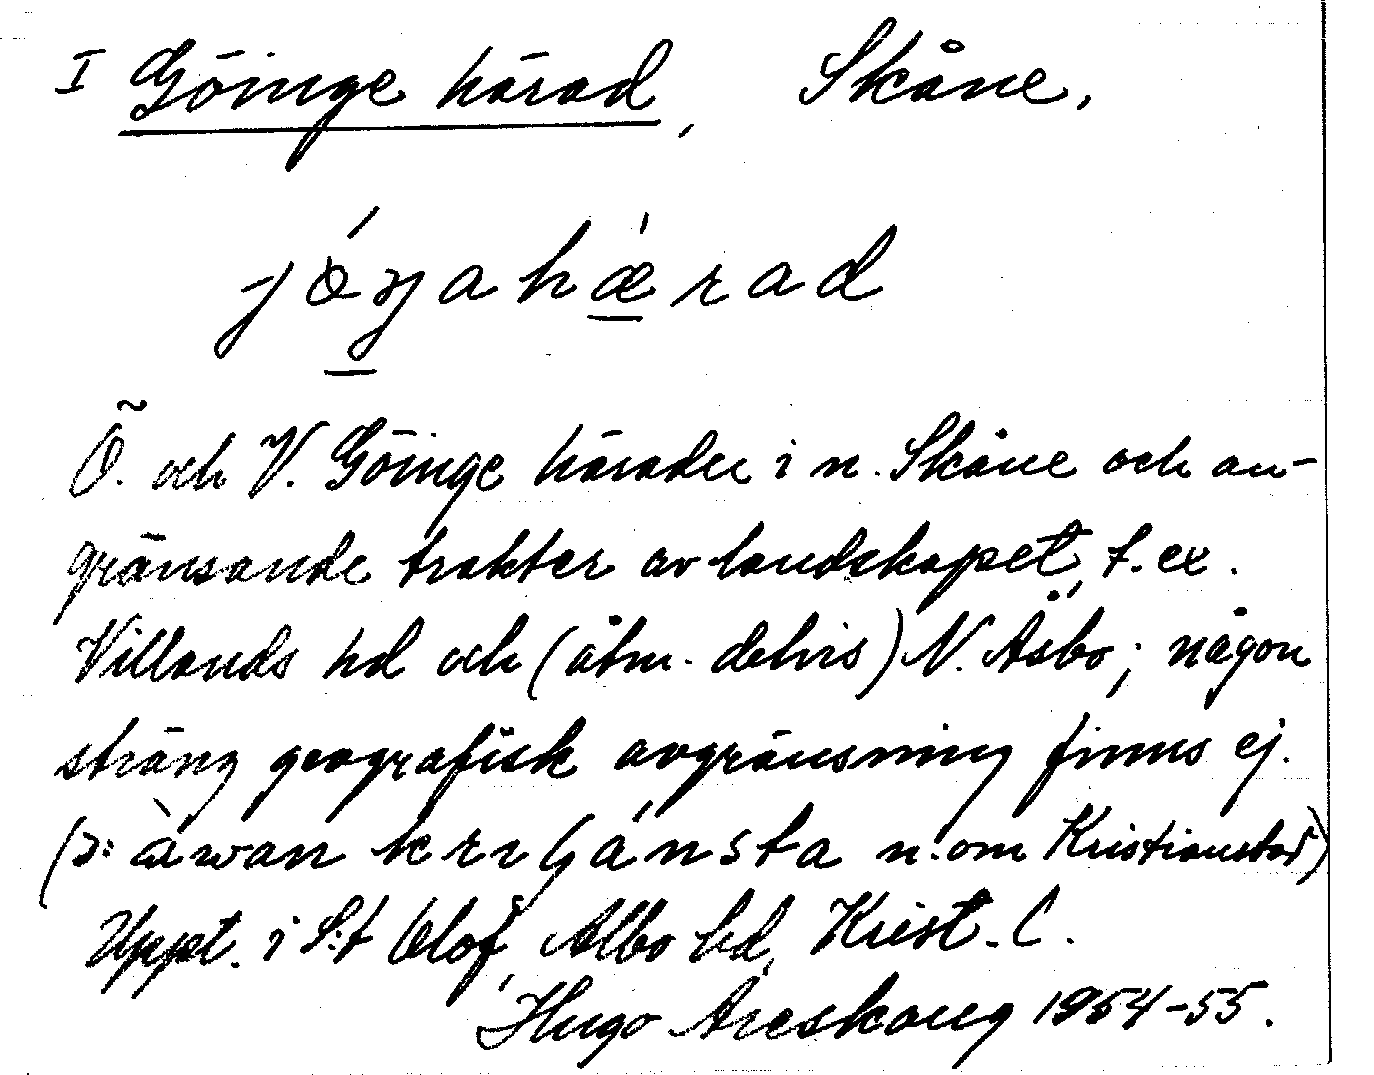 I Göinge härad, Skåne.
jǿŋahǽrad
Ö. och V. Göinge härader i n. Skåne och an-
gränsande trakter av landskapet, t. ex.
Villands hd och (åtm. delvis) N. Åsbo; någon
sträng geografisk avgränsning finns ej.
(ɔ: àwan n. om Kristianstad)
Uppt. i S:t Olof, Albo hd, Krist. l.
Hugo Areskoug 1954-55.